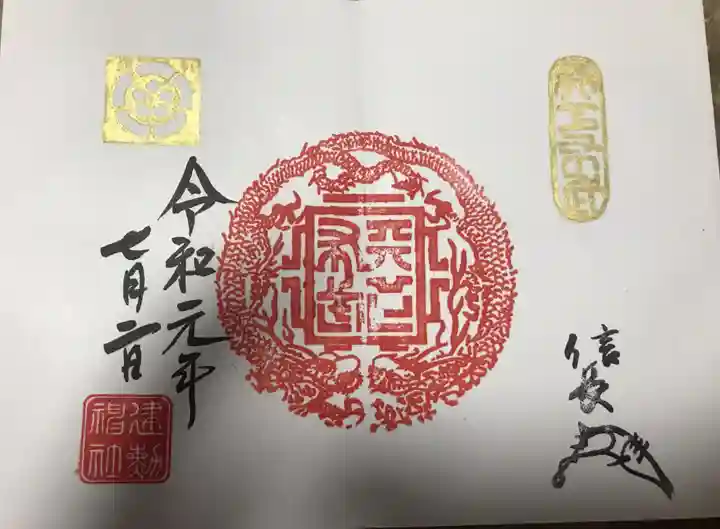 天下
布武
信長
令和元年
七月二日
建勲
神社